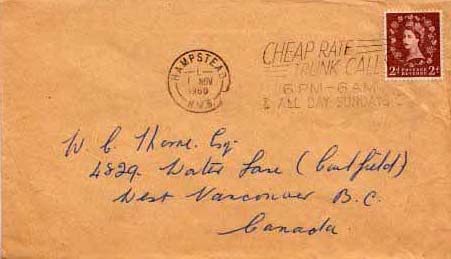 HAMPSTEAD
1 NOV
1960
N.W.3.
CHEAP RATE
TRUNK CALLS
6 PM - 6 AM
& ALL DAY SUNDAYS
2d POSTAGE REVENUE 2d
W. C. Thorne. Esq.
4829. Water Lane (Caulfield)
West Vancouver B.C.
Canada.